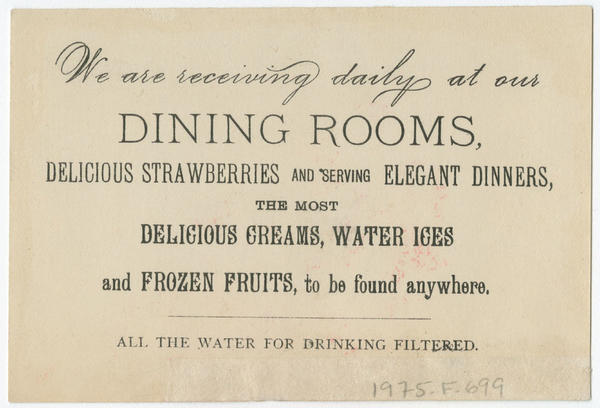 We are receiving daily at our
DINING ROOMS,
DELICIOUS STRAWBERRIES AND SERVING ELEGANT DINNERS,
THE MOST
DELICIOUS CREAMS, WATER ICES
and FROZEN FRUITS, to be found anywhere.
ALL THE WATER FOR DRINKING FILTERED.
1975.F.699